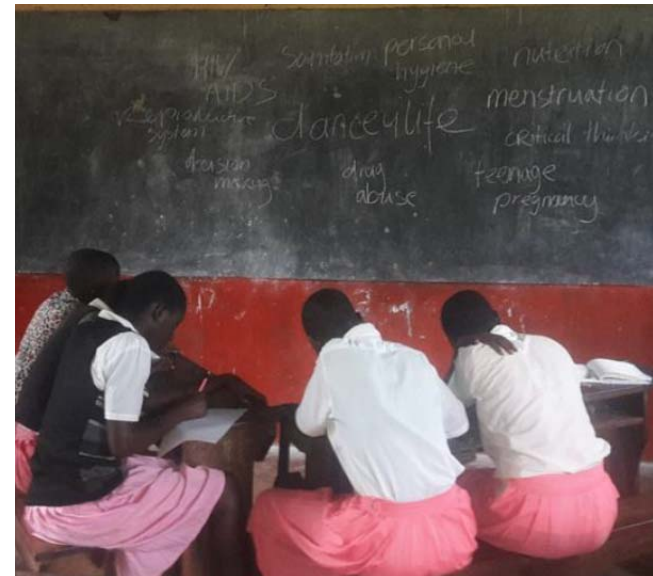 HIV/
AIDS
Sanitation personal
hygiene
nutrition
menstruation
reproductive
system
dance4life
critical thinkin
decision
making
drug
abuse
teenage
pregnancy